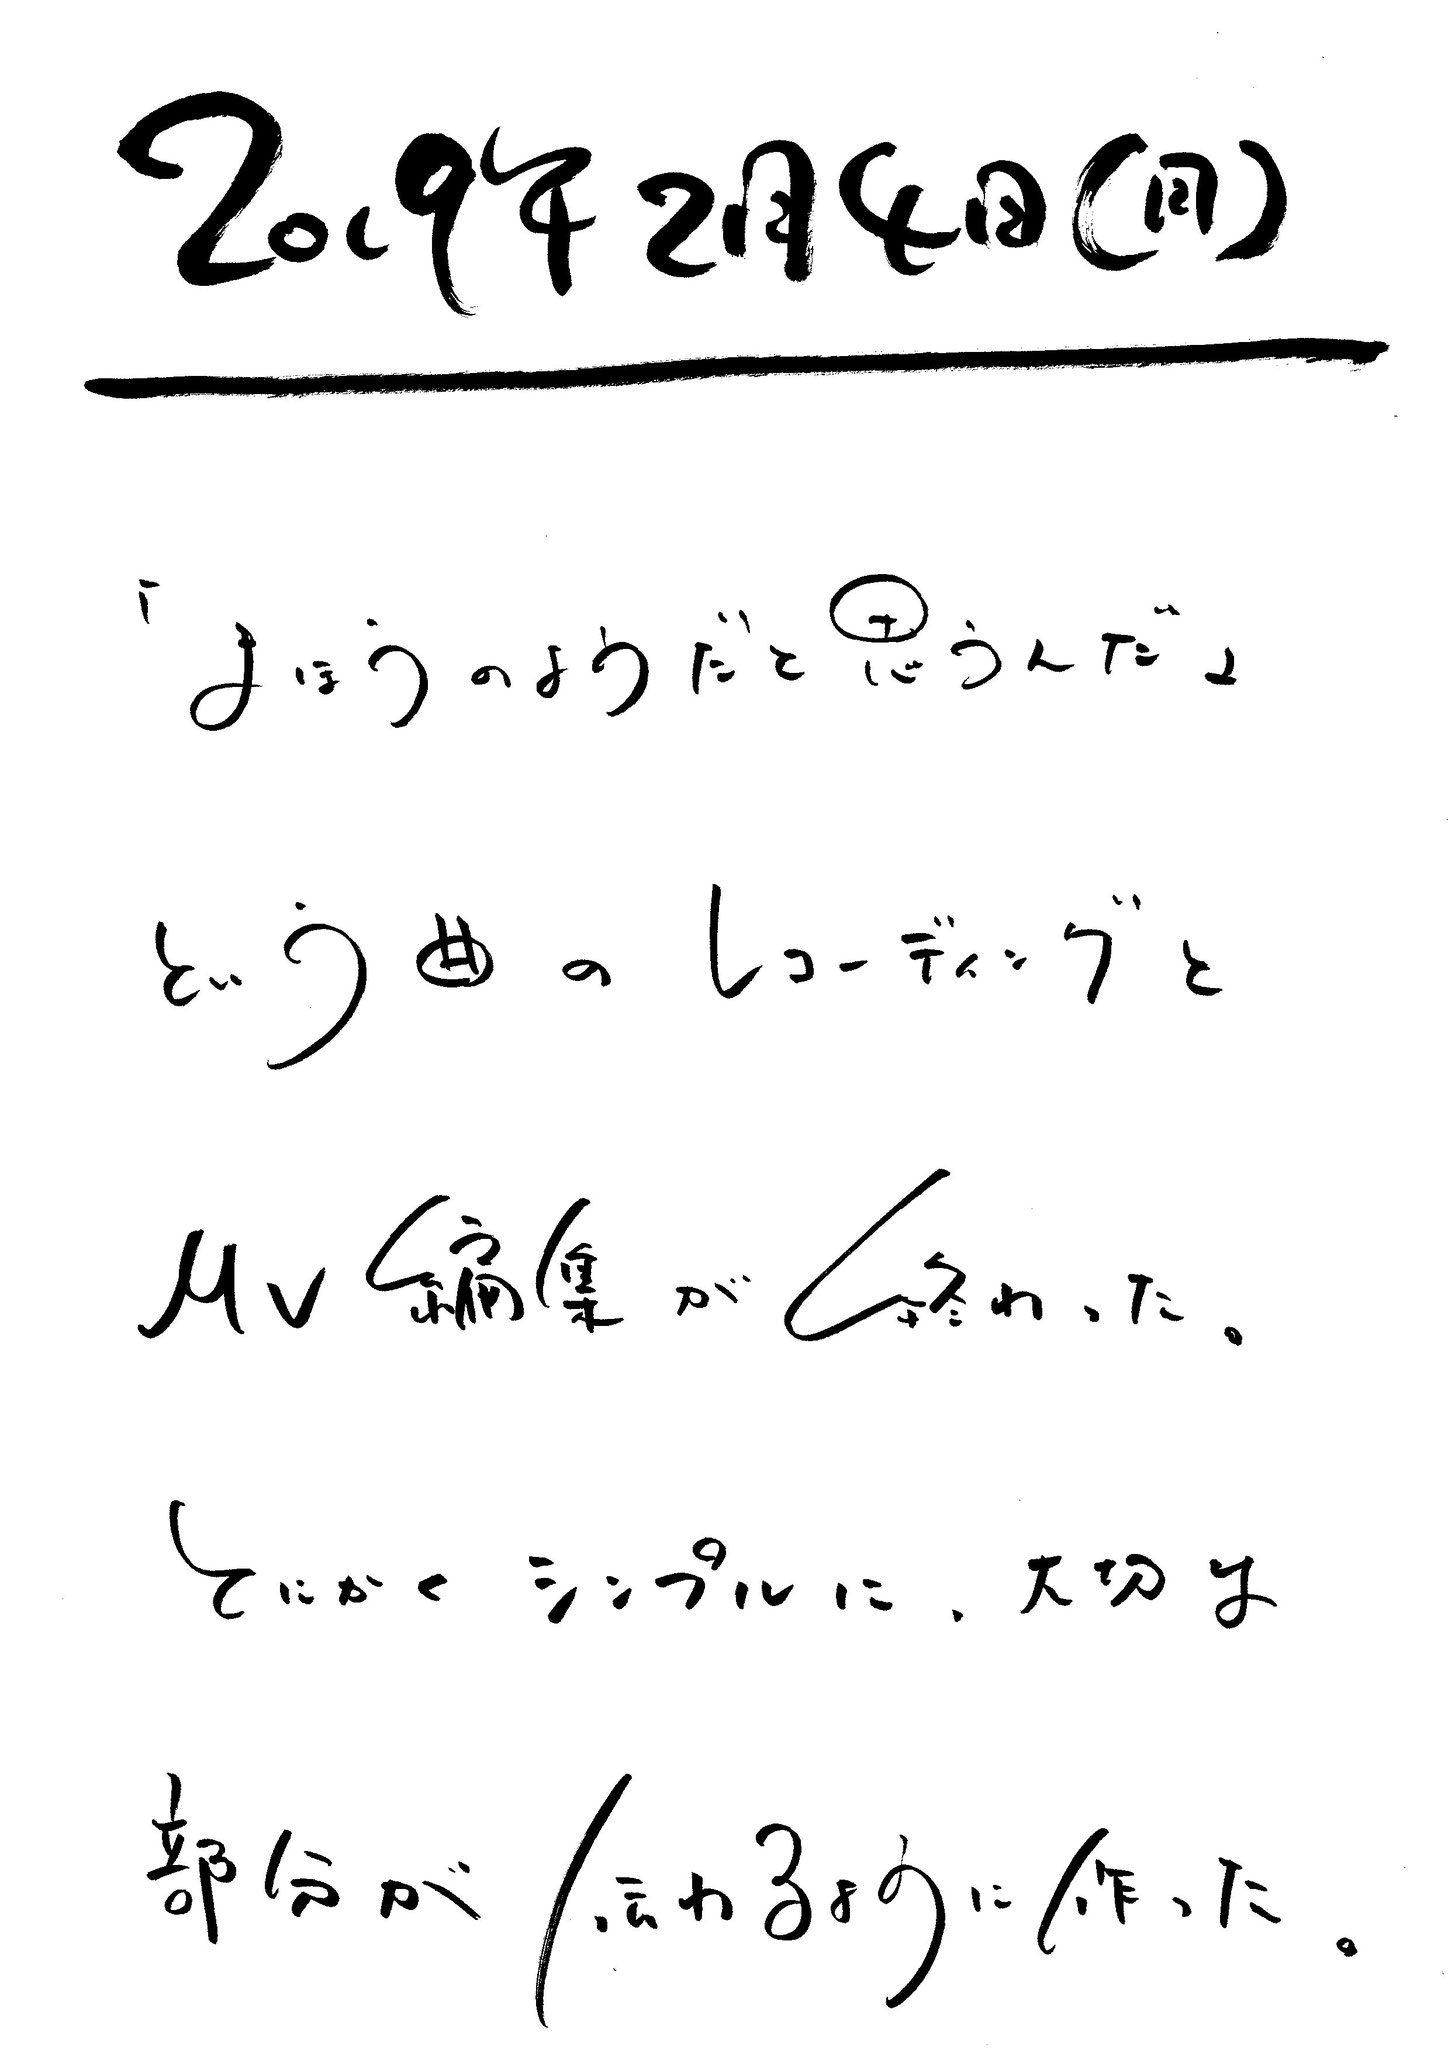 2019年2月4日(月)
「まほうのようだと思うんだ」
という曲のレコーディングと
MV編集が終わった。
とにかくシンプルに、大切な
部分が伝わるように作った。